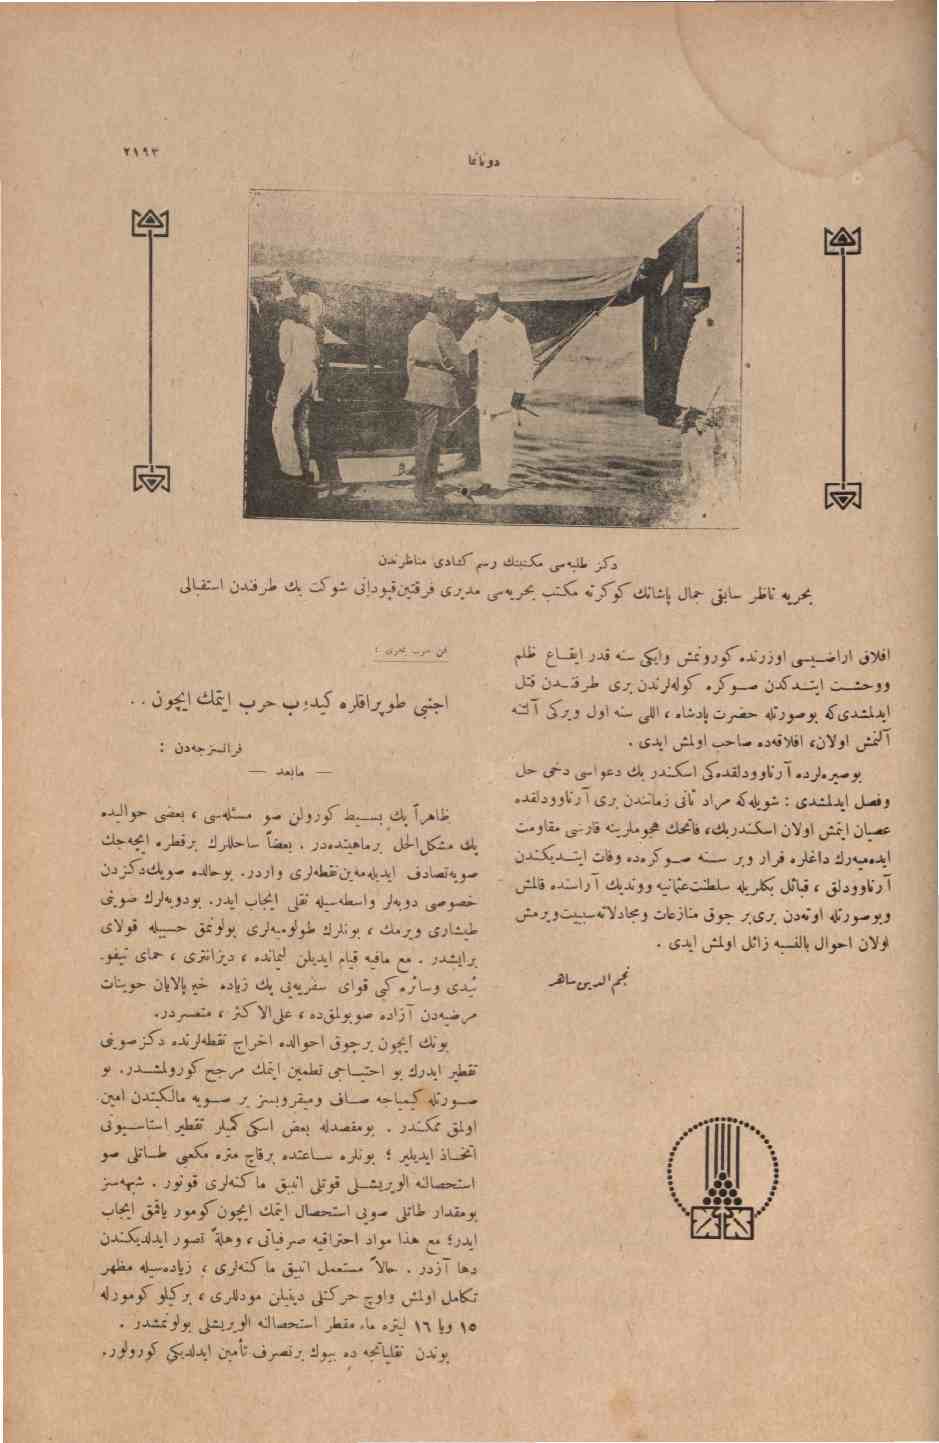 دوناغا
٢١٩٣
دكز طلبه‌سی مكتبنك رسم كشادی مناظرندن
بحریه ناظر سابقی جمال پاشانك كوكرته مكتب بحریه‌سی مدیری فرقتین‌قپودانی شوكت بك طرفندن استقبالی
افلاق اراضیسی اوزرنده كورونمش وایكی سنه قدر ایقاع ظلم
ووحشت ایتدكدن صوكره كوله‌لرندن بری طرفندن قتل
ایدلمشدی‌كه بوصورتله حضرت پادشاه ، اللی سنه اول ویركی آلتنه
آلنمش اولان، افلاقه‌ده صاحب اولمش ایدی .
بوصیره‌لرده آرناوودلقده‌كی اسكندر بك دعواسی دخی حل
وفصل ایدلمشدی : شویله‌كه مراد ثانی زمانندن بری آرناوودلقده
عصیان ایتمش اولان اسكندربك، فاتحك هجوملرینه قارسی مقاومت
ایده‌میه‌رك داغلره فرار وبر سنه صوكره‌ده وفات ایتدیكندن
آرناوودلق ، قبائل بكلریله سلطنت‌عثمانیه ووندیك آراسنده قالمش
وبوصورتله اوته‌دن بری‌بر جوق منازعات ومجادلاته‌سببیت‌ویرمش
اولان احوال بالنفسه زائل اولمش ایدی .
نجم الدین ساهر
فن حرب بحری :
اجنبی طوپراقلره كیدوب حرب ایتمك ایچون . .
فرانسزجه‌دن :
— مابعد —
ظاهراً پك بسیط كورولن صو مسئله‌سی ، بعضی حوالیده
پك مشكل‌الحل برماهیتده‌در . بعضاً ساحللرك برقطره ایچه‌جك
صویه‌تصادف ایدیله‌مه‌ین‌نقطه‌لری واردر. بوحالده صویك‌دكزدن
خصوصی دوبه‌لر واسطه‌سیله نقلی ایجاب ایدر. بودوبه‌لرك صوینی
طیشاری ویرمك ، بونلرك طولومبه‌لری بولونمق حسبیله قولای
برایشدر . مع مافیه قیام ایدیلن لیمانده ، دیزانتری ، حمای تیفو-
ئیدی وسائره كبی قوای سفریه‌یی پك زیاده خیرپالایان حوینات
مرضیه‌دن آزاده صوبولمق‌ده ، علی‌الاكثر ، متعسردر.
بونك ایچون برجوق احوالده اخراج نقطه‌لرنده دكزصوینی
تقطیر ایدرك بو احتیاجی تطمین ایتمك مرجح كورولمشدر. بو
صورتله كیمیاجه صاف ومیقروبسز بر صویه مالكیتدن امین
اولمق ممكندر . بومقصدله بعض اسكی كمیلر تقطیر استاسیونی
اتخاذ ایدیلیر ؛ بونلره ساعتده برقاچ متره مكعبی طاتلی صو
استحصالنه الویریشلی قوتلی انبیق ماكنه‌لری قونور . شبهه‌سز
بومقدار طاتلی صویی استحصال ایتمك ایچون‌كومور یاقمق ایجاب
ایدر؛ مع هذا مواد احتراقیه صرفیاتی ، وهلةً تصور ایدلدیكندن
دها آزدر . حالاً مستعمل انبیق ماكنه‌لری ، زیاده‌سیله مظهر
تكامل اولمش واوچ حركتلی دینیلن مودللری ، بركیلو كومورله
١٥ ویا ١٦ لیتره ماء مقطر استحصالنه الویریشلی بولونمشدر .
بوندن نقلیاتجه ده بیوك برتصرف تأمین ایدلدیكی كورولور.